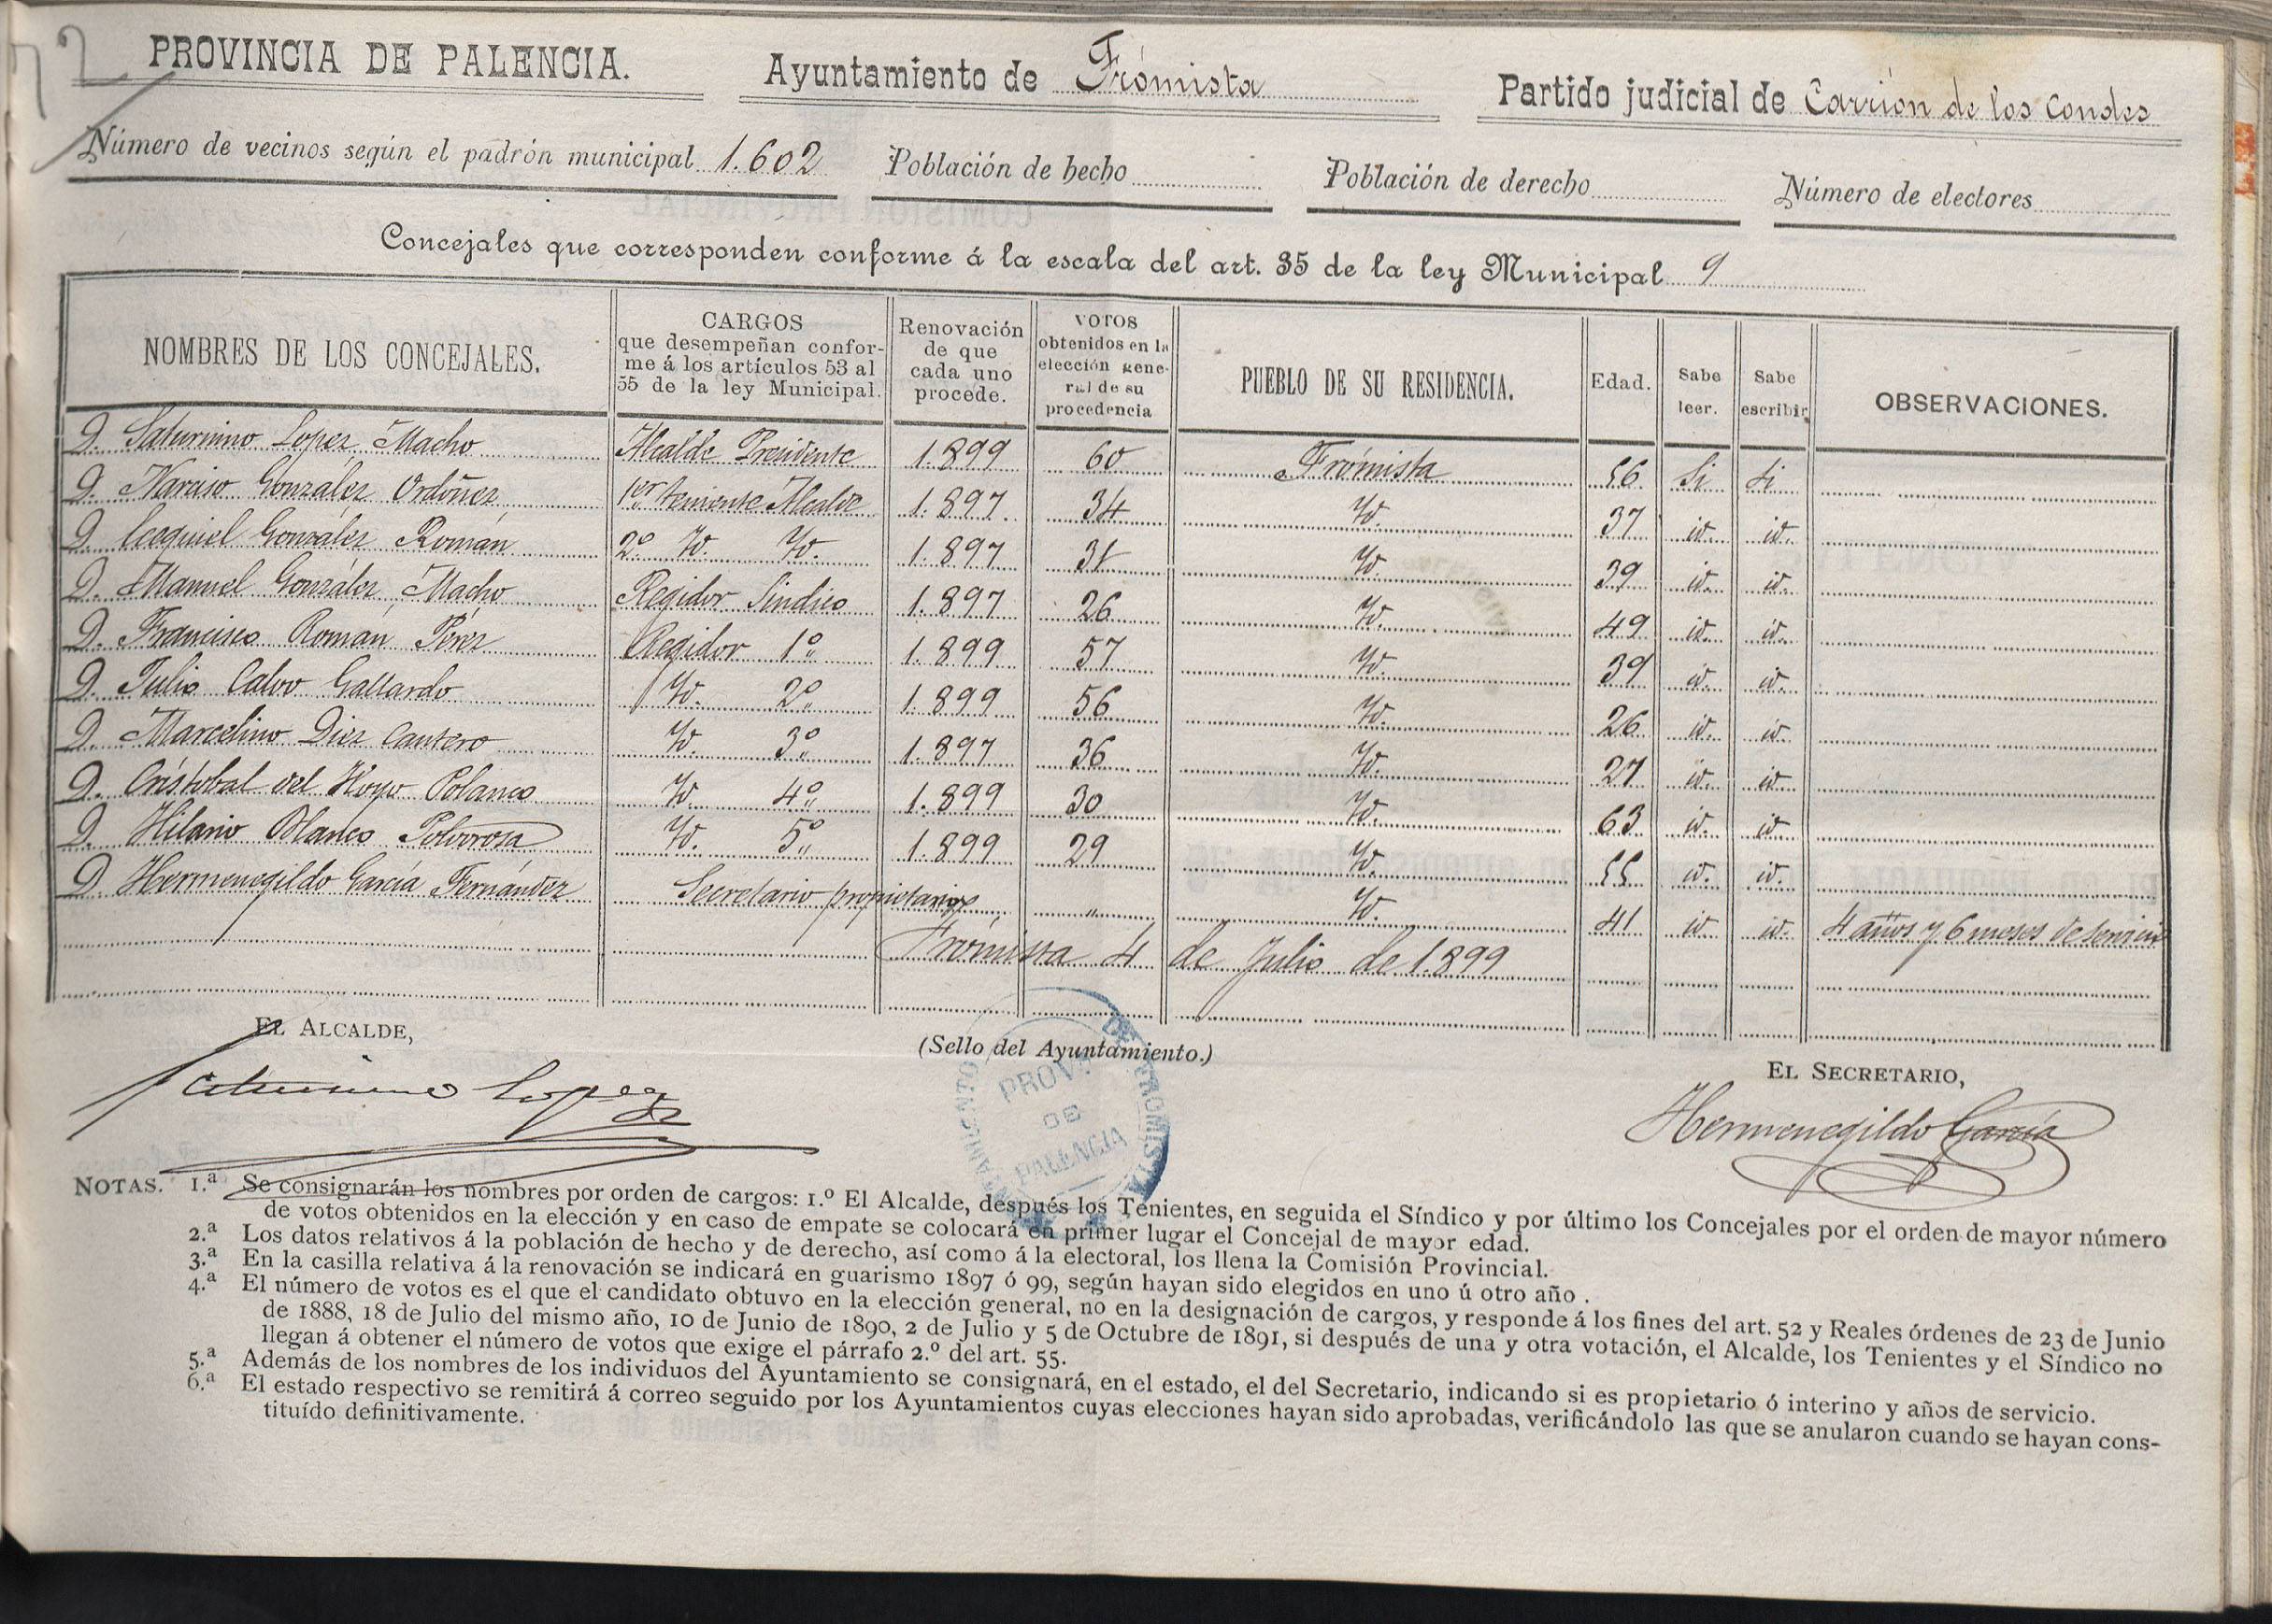 72
PROVINCIA DE PALENCIA. Ayuntamiento de Frómista Partido judicial de Carrión de los Condes
Número de vecinos según el padrón municipal 1.602 Población de hecho Población de derecho Número de electores
Concejales que corresponden conforme á la escala del art. 35 de la ley Municipal 9
NOMBRES DE LOS CONCEJALES. CARGOS que desempeñan confor- me á los artículos 53 al 55 de la ley Municipal. Renovación de que cada uno procede. VOTOS obtenidos en la elección gene- ral de su procedencia PUEBLO DE SU RESIDENCIA. Edad. Sabe leer. Sabe escribir OBSERVACIONES.
D. Saturnino Lopez Macho Alcalde Presidente 1.899 60 Frómista 56 Si Si
D. Narciso González Ordóñez 1er teniente Alcalde 1.897 34 Yd. 37 id. id.
D. Ecequiel González Román 2º Yd. Yd. 1.897 31 Yd. 39 id. id.
D. Manuel González Macho Regidor Síndico 1.897 26 Yd. 49 id. id.
D. Francisco Román Pérez Regidor 1º 1.899 57 Yd. 39 id. id.
D. Julio Calvo Gallardo Yd. 2º 1.899 56 Yd. 26 id. id.
D. Marcelino Diez Cantero Yd. 3º 1.897 36 Yd. 27 id. id.
D. Cristobal del Hoyo Polanco Yd. 4º 1.899 30 Yd. 63 id. id.
D. Hilario Blanco Polvorosa Yd. 5º 1.899 29 Yd. 55 id. id.
D. Hermenegildo García Fernández Secretario propietario " Yd. 41 id id. 4 años y 6 meses de servicio
Frómista 4 de Julio de 1.899
EL ALCALDE, (Sello del Ayuntamiento.) EL SECRETARIO,
AYUNTAMIENTO DE FROMISTA
PROVª DE PALENCIA
Saturnino Lopez
Hermenegildo García
NOTAS. 1.ª Se consignarán los nombres por orden de cargos: 1.º El Alcalde, después los Tenientes, en seguida el Síndico y por último los Concejales por el orden de mayor número
de votos obtenidos en la elección y en caso de empate se colocará en primer lugar el Concejal de mayor edad.
2.ª Los datos relativos á la población de hecho y de derecho, así como á la electoral, los llena la Comisión Provincial.
3.ª En la casilla relativa á la renovación se indicará en guarismo 1897 ó 99, según hayan sido elegidos en uno ú otro año .
4.ª El número de votos es el que el candidato obtuvo en la elección general, no en la designación de cargos, y responde á los fines del art. 52 y Reales órdenes de 23 de Junio
de 1888, 18 de Julio del mismo año, 10 de Junio de 1890, 2 de Julio y 5 de Octubre de 1891, si después de una y otra votación, el Alcalde, los Tenientes y el Síndico no
llegan á obtener el número de votos que exige el párrafo 2.º del art. 55.
5.ª Además de los nombres de los individuos del Ayuntamiento se consignará, en el estado, el del Secretario, indicando si es propietario ó interino y años de servicio.
6.ª El estado respectivo se remitirá á correo seguido por los Ayuntamientos cuyas elecciones hayan sido aprobadas, verificándolo las que se anularon cuando se hayan cons-
tituído definitivamente.